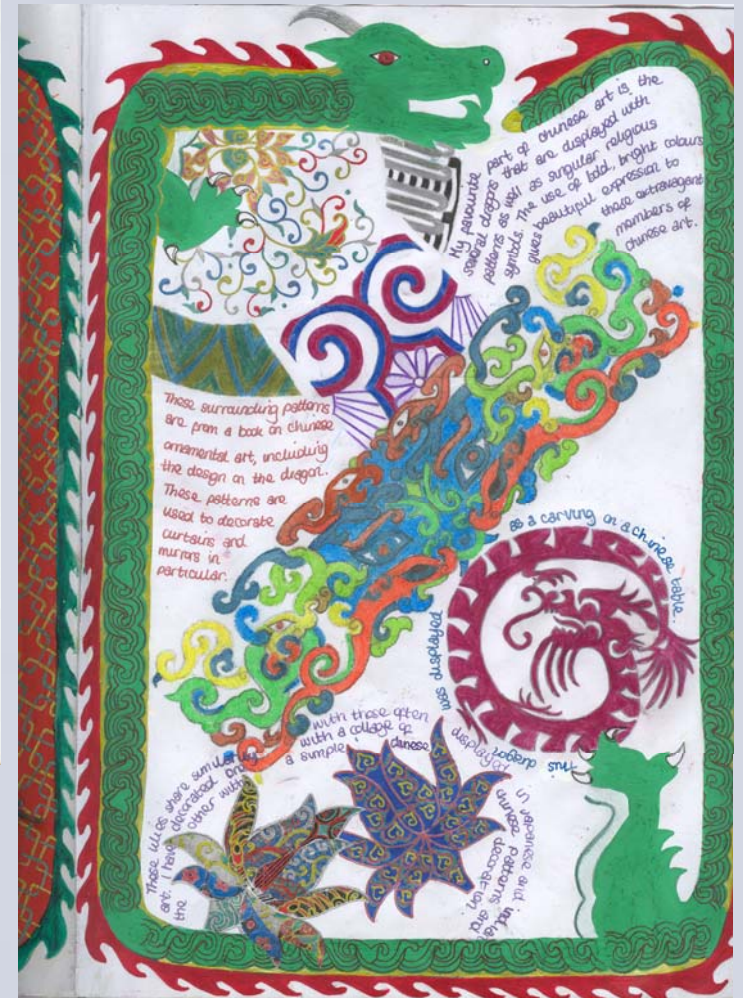 My favourite part of chinese art is the
several dragons that are displayed with
patterns as well as singular religious
symbols. The use of bold, bright colours
gives beautiful expression to
these extravagant
members of
chinese art.
These surrounding patterns
are from a book on chinese
ornamental art, including
the design on the dragon.
These patterns are
used to decorate
curtains and
mirrors in
particular.
This dragon was displayed as a carving on a chinese table.
These lilies share similarity with those often displayed in japanese and
art. I have decorated one with a collage of chinese patterns and
the other with a simple chinese decoration.